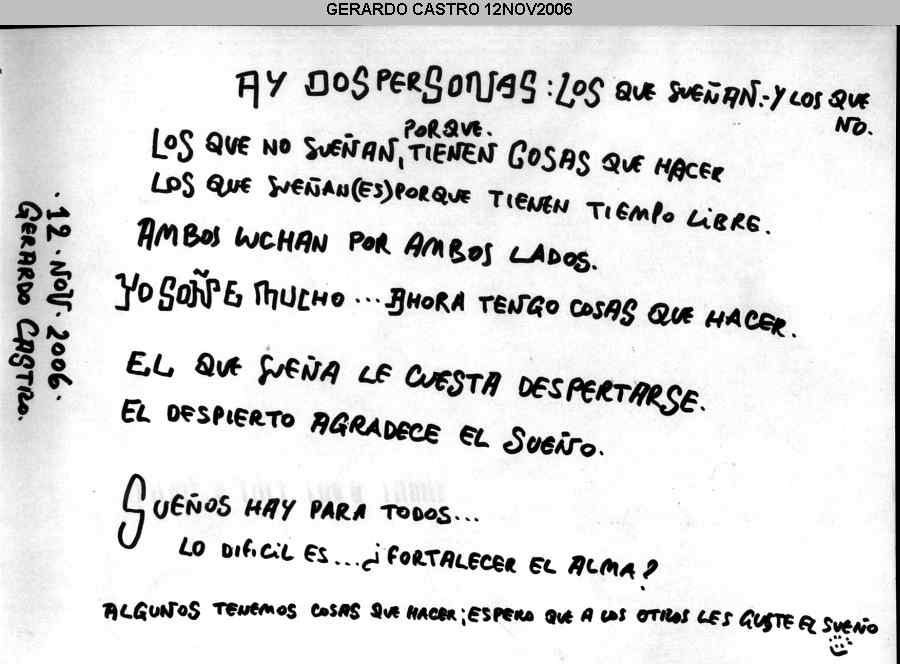 GERARDO CASTRO 12NOV2006
AY DOS PERSONAS: LOS QUE SUEÑAN.-Y LOS QUE
NO.
PORQUE.
LOS QUE NO SUEÑAN, TIENEN COSAS QUE HACER
LOS QUE SUEÑAN(ES)PORQUE TIENEN TIEMPO LIBRE.
AMBOS LUCHAN POR AMBOS LADOS.
YO SOÑE MUCHO... AHORA TENGO COSAS QUE HACER.
EL QUE SUEÑA LE CUESTA DESPERTARSE.
EL DESPIERTO AGRADECE EL SUEÑO.
SUEÑOS HAY PARA TODOS...
LO DIFICIL ES...¿FORTALECER EL ALMA?
ALGUNOS TENEMOS COSAS QUE HACER; ESPERO QUE A LOS OTROS LES GUSTE EL SUEÑO
.12.NOV.2006.
GERARDO CASTRO.